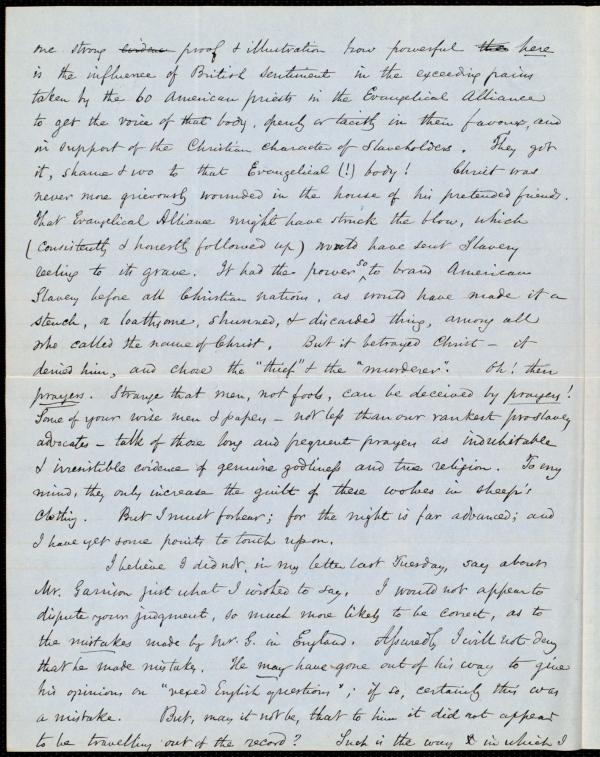 one strong evidence proof & illustration how powerful the here
is the influence of British sentiment in the exceeding pains
taken by the 60 American priests in the Evangelical Alliance
to get the voice of that body, openly or tacitly in their favour, and
in support of the Christian character of Slaveholders. They got
it, shame & wo to that Evangelical (!) body! Christ was
never more grievously wounded in the house of his pretended friends.
That Evangelical Alliance might have struck the blow, which
(consistently & honestly followed up) would have sent Slavery
reeling to its grave. It had the power so to brand American
Slavery before all Christian nations, as would have made it a
stench, a loathsome, shunned, & discarded thing, among all
who called the name of Christ. But it betrayed Christ – it
denied him, and chose the "thief" & the "murderer". Oh! their
prayers. Strange that men, not fools, can be deceived by prayers!
Some of your wise men & papers – not less than our rankest proslavery
advocates – talk of those long and frequent prayers as indubitable
& irresistible evidence of genuine godliness and true religion. To my
mind, they only increase the guilt of these wolves in sheep's
clothing. But I must forbear; for the night is far advanced; and
I have yet some points to touch upon.
I believe I did not, in my letter last Tuesday, say about
Mr. Garrison just what I wished to say. I would not appear to
dispute your judgment, so much more likely to be correct, as to
the mistakes made by Mr. G. in England. Assuredly I will not deny
that he made mistakes. He may have gone out of his way to give
his opinions on "vexed English questions"; if so, certainly this was
a mistake. But, may it not be, that to him it did not appear
to be travelling out of the record? Such is the way in which I